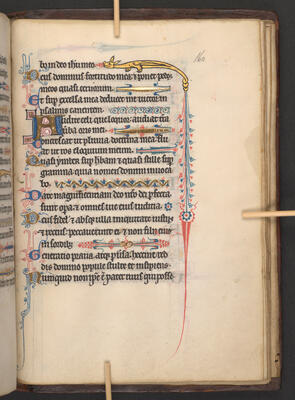 160
bo in deo ihu meo
Deus dominus fortitudo mea & ponet pedes
meos quasi ceruorum
Et sup excelsa mea deducet me uictor in
psalmis canentem
Audite celi que loquor audiat tra
uerba oris mei
Concrescat ut pluuia doctrina mea flu
at ut ros eloquium meum
Quasi ymber sup herbam & quasi stille sup
gramina quia nomen domini inuoca
bo
Date magnificentiam deo nro dei pfecta
sunt opa & omnes uie eius iudicia
Deus fidel & absq ulla iniquitate iustus
& rectus peccauerunt ei & non filii eius
in sordib
Generatio praua atq puersa heccine red
dis domino popule stulte et insipiens
Numquid non ipse e pater tuus qui posse